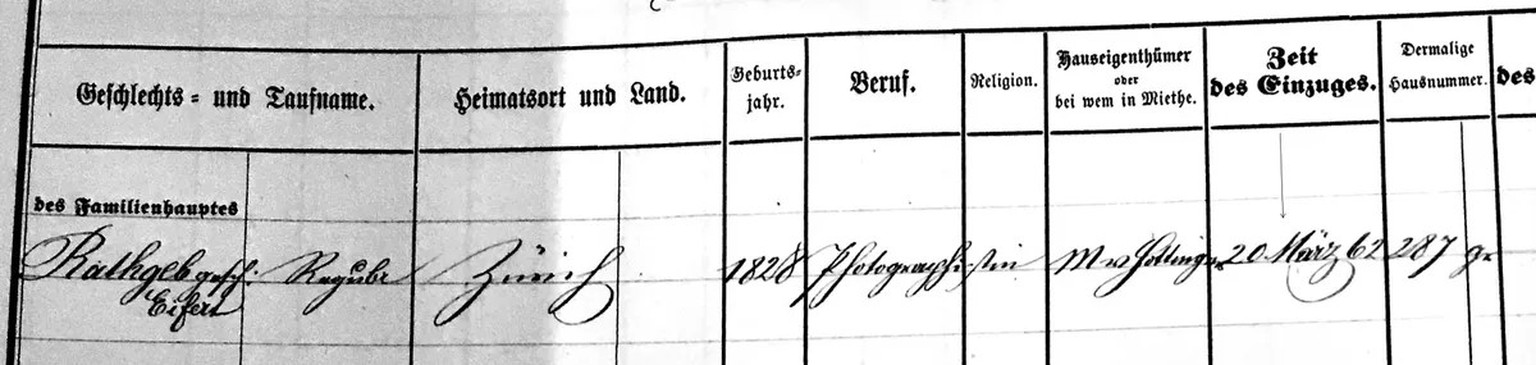 Geschlechts- und Taufname. Heimatsort und Land. Geburts-jahr. Beruf. Religion. Hauseigenthümer oder bei wem in Miethe. Zeit des Einzuges. Dermalige Hausnummer. des
des Familienhauptes
Rathgeb gesch. Zürich 1828 Photographistin 20 März 62 287